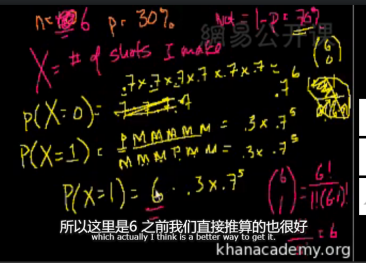 n=6 p=30% not=1-p=70%
X=# of shots I make
.7×.7×.7×.7×.7×.7=.7⁶
P(X=0)=
P(X=1)= P M M M M M = .3×.7⁵
M M P M M M = .3×.7⁵
P(X=1)= 6 · .3×.7⁵
(6 1) = 6!/1!(6-1)! = 6
(6 0)
網易公开课
所以这里是6 之前我们直接推算的也很好
which actually I think is a better way to get it.
khanacademy.org